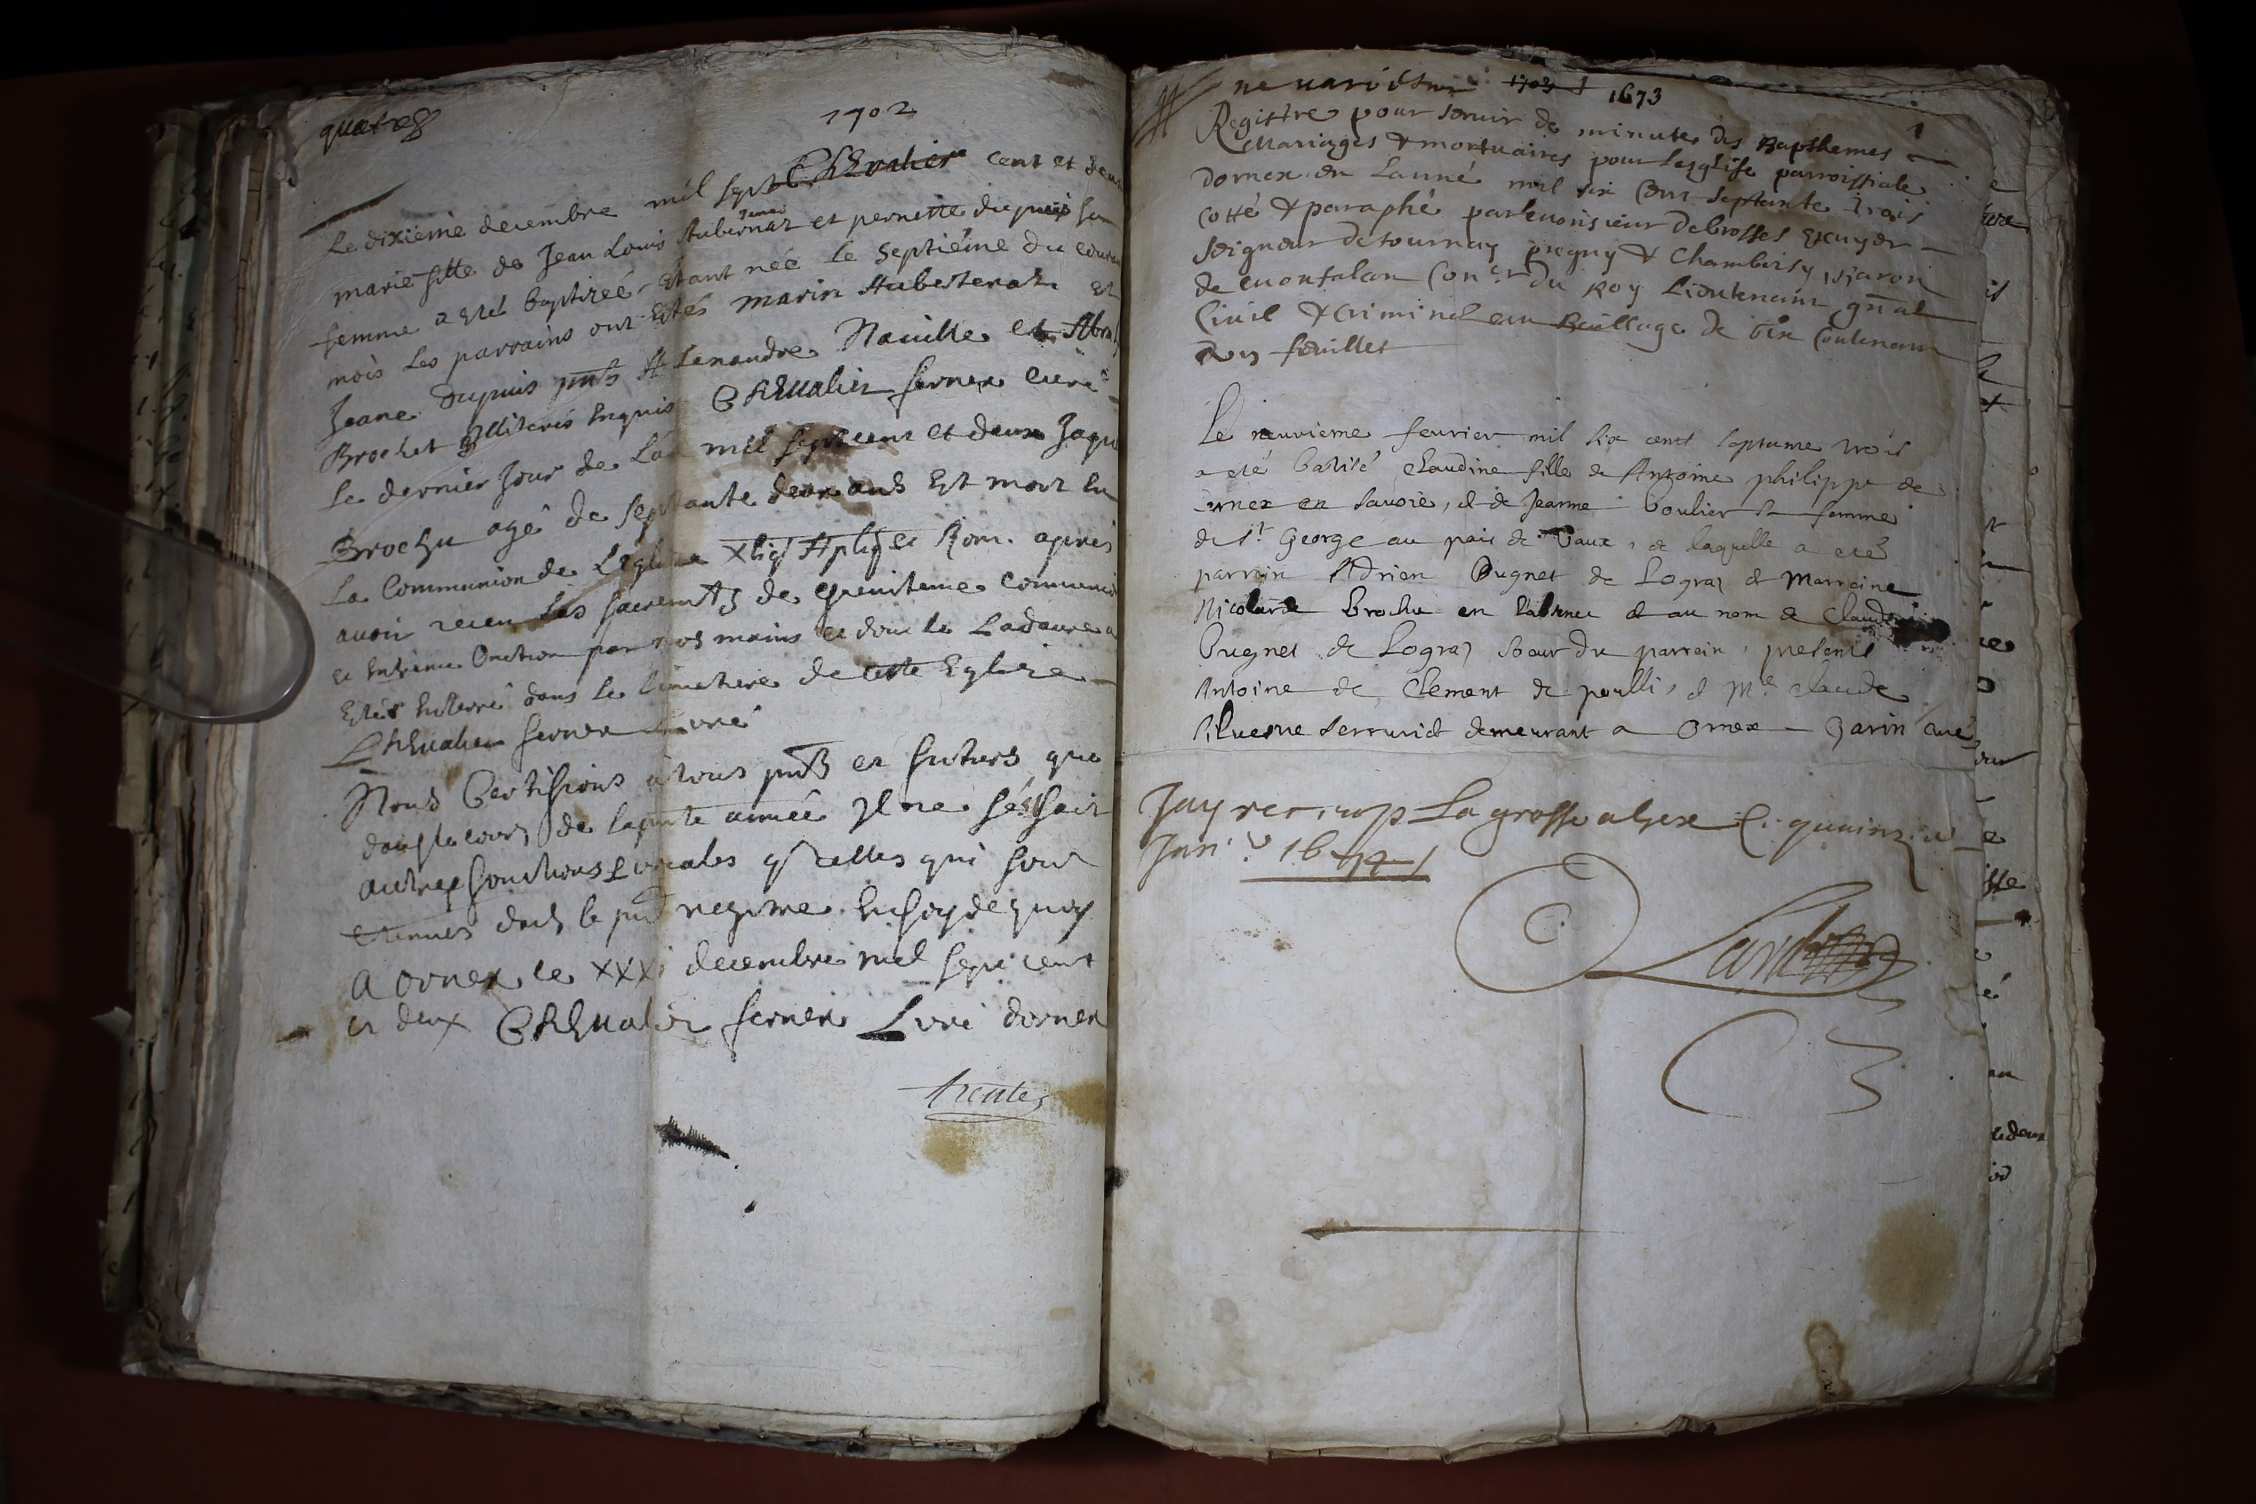 1702
Le dixieme decembre mil sept Chevalier cent et deux
marie fille de Jean Louis Aubernat et pernette dupuis sa
femme a esté baptizée étant née le septiéme du courant
mois les parrains ont estés marin Aubesternat et
Jeane Dupuis Nouille et
Brochet Illiterés Enquis Chevalier fernex curé
Le dernier Jour de L'an mil sept cent et deux Jaque
Brochu agé de septante deux ans Est mort En
La Communion de L'Eglise Rom. apres
avoir receu Les de
et Extreme Onction par nos mains et dont le Cadavre a
Estés Enterré dans le Cimetiere de cette Eglise
Chevalier fernex Curé
Nous Certifions a tous et futurs que
dans le cours de année Il ne s'est fait
autres fonctions que celles qui sont
dans le registre En foy de quoy
a ornex le XXXI decembre mil sept cent
et deux Chevalier fernex Curé dornex
trente
ne varietur 1703 1673
1
Registre pour servir de minute des Bapthemes
Mariages & mortuaires pour Leglise parroissiale
Dornex en Lanné mil six Cent septante trois
Cotté & paraphé par Monsieur Debrosses Escuyer
Seigneur de tournay pregny & Chambeisy Baron
de Montfalcon Con.er du Roy Lieutenant gnal
Civil & Criminel au Bailliage de Gex Contenant
feuillet
Le neuvieme fevrier mil six cent septante trois
a eté batisé claudine fille de Antoine philippe de
ornex en savoie, et de Jeanne boulier sa femme
de St George au pais de Vaux, de laquelle a eté
parrin Adrien Bugnet de Logras et Marreine
Nicolarde brochu en l'absence et au nom de Claudine
bugnet de Logras soeur du parrein, presents
Antoine de Clement de poulli, et Me Claude
silvestre serruriet demeurant a Ornex Zarin curé
Jay receu La grosse a Gex Ce quinze
Janv. 1674